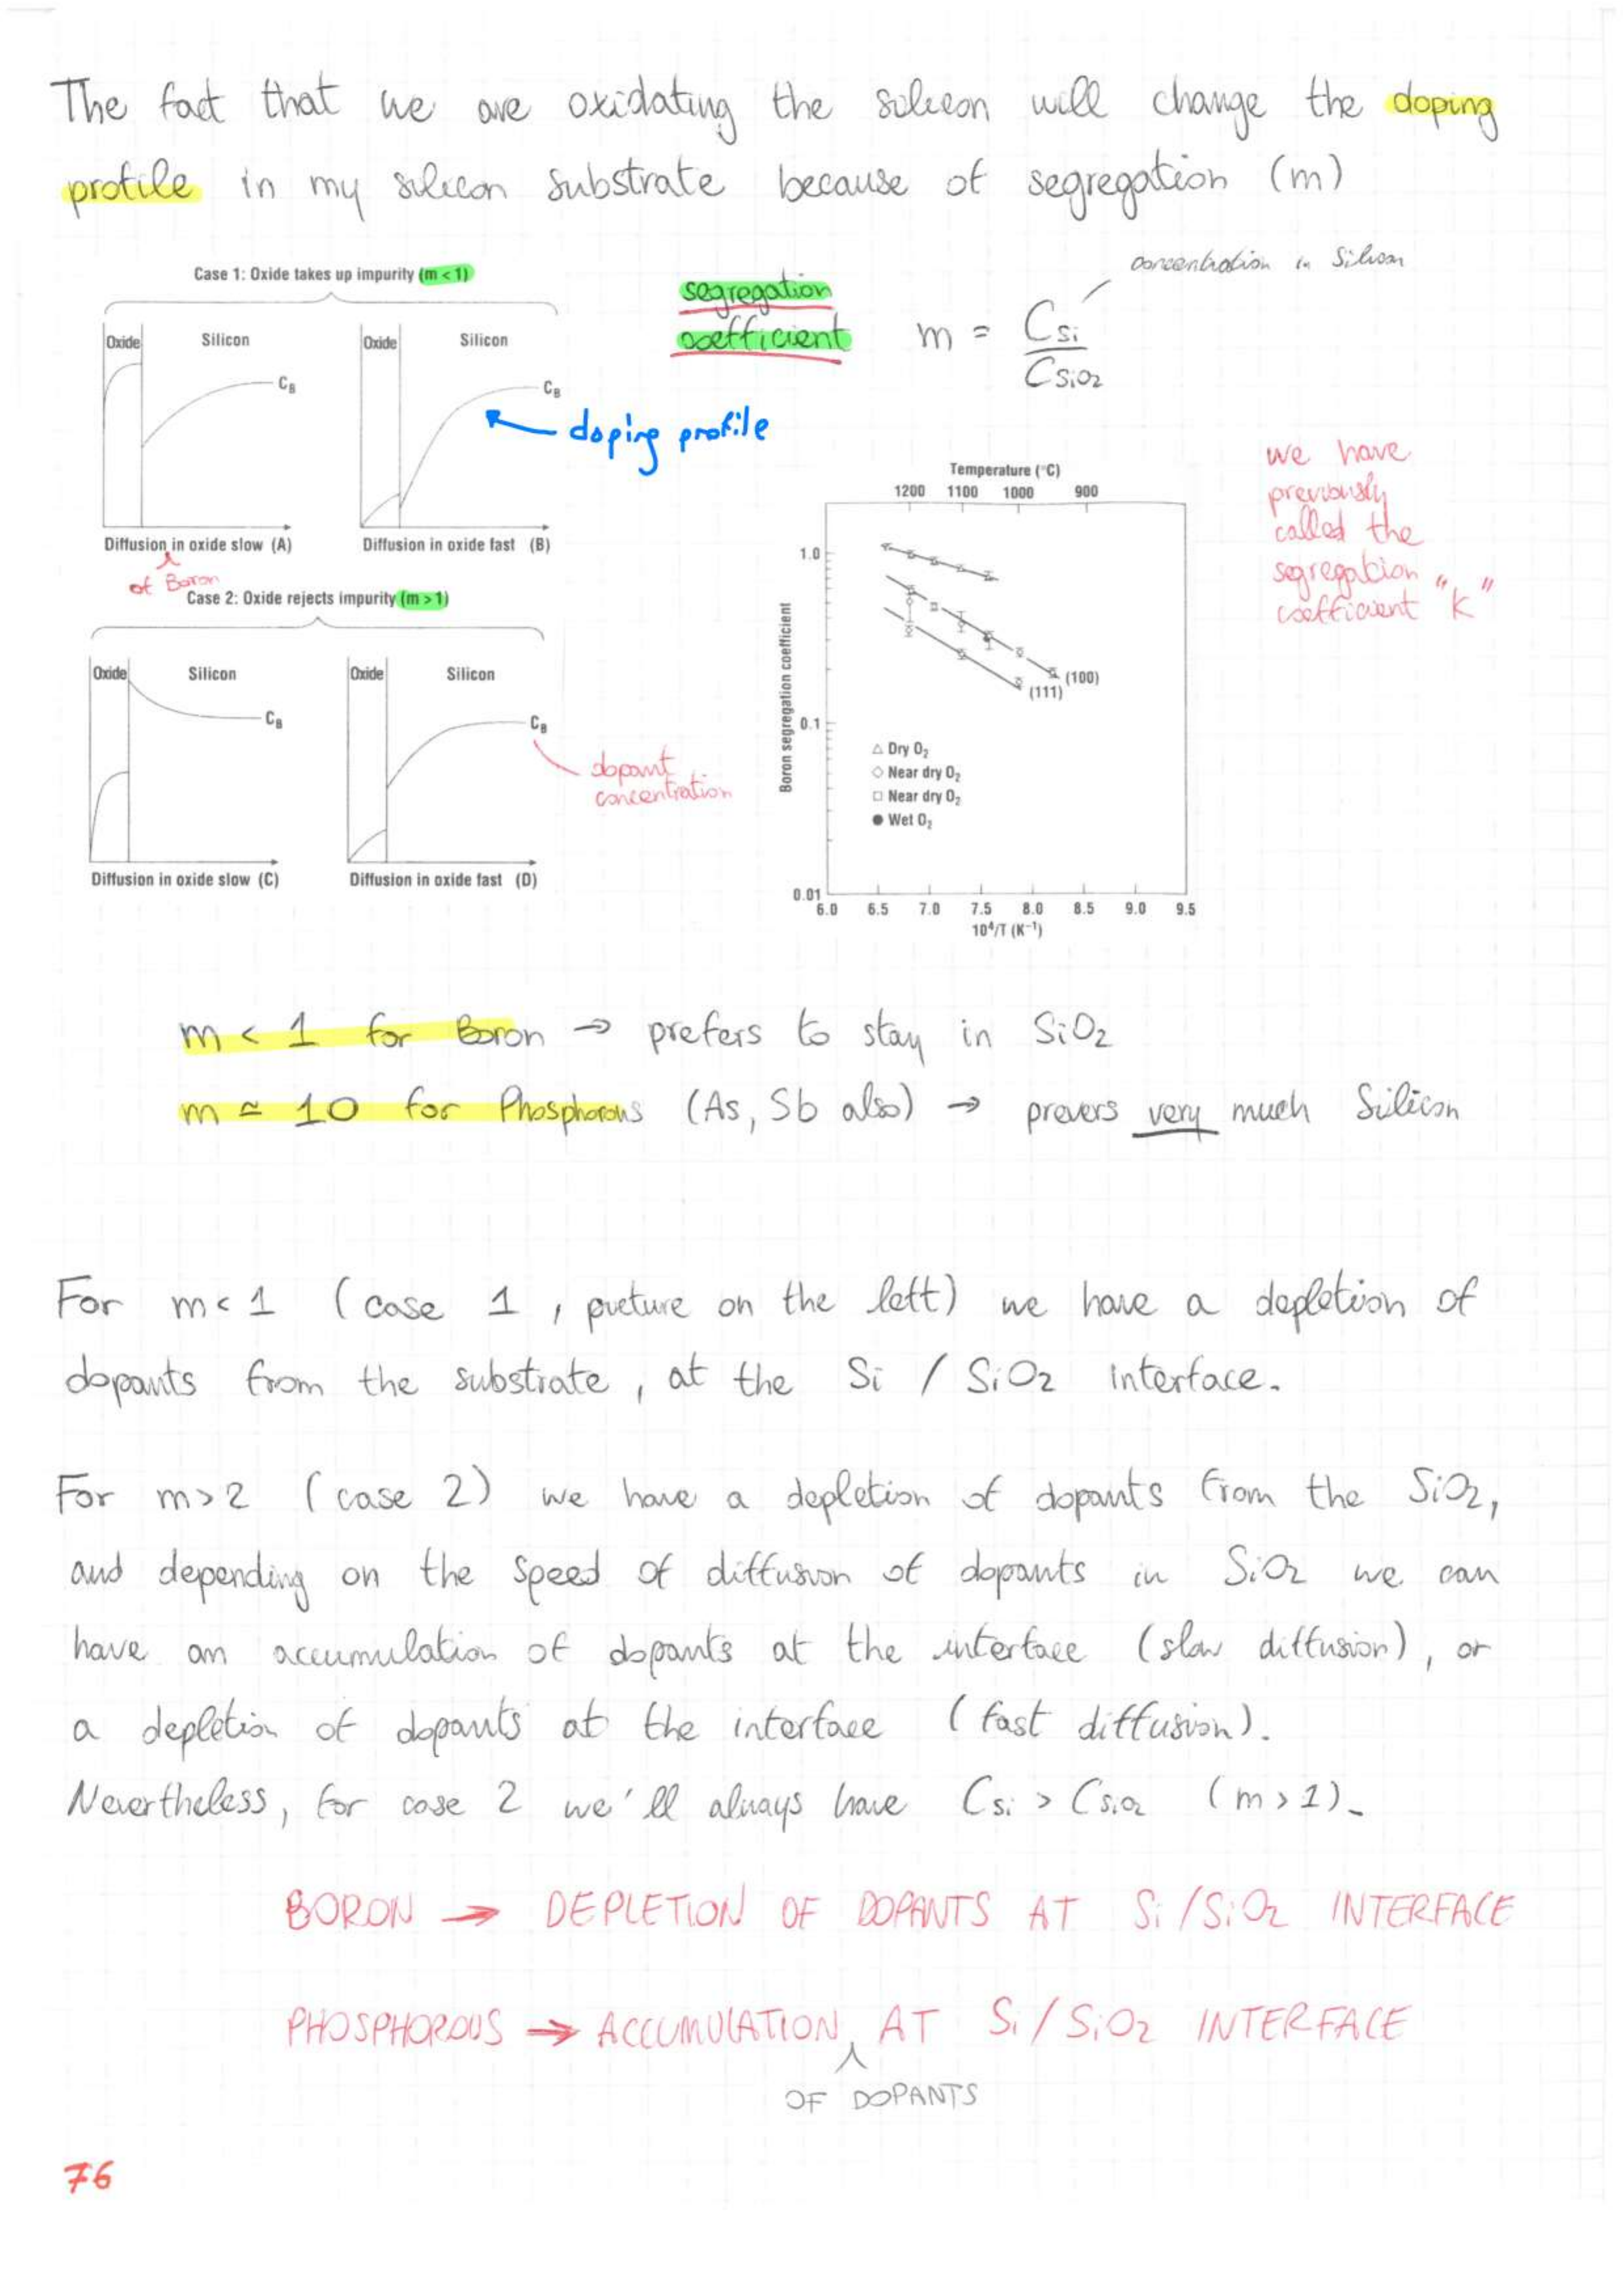 The fact that we are oxidating the silicon will change the doping
profile in my silicon substrate because of segregation (m)
Case 1: Oxide takes up impurity (m < 1)
Oxide
Silicon
C_B
Diffusion in oxide slow (A)
of Boron
Oxide
Silicon
C_B
Diffusion in oxide fast (B)
doping profile
Case 2: Oxide rejects impurity (m > 1)
Oxide
Silicon
C_B
Diffusion in oxide slow (C)
Oxide
Silicon
C_B
Diffusion in oxide fast (D)
dopant
concentration
segregation
coefficient
m = C_Si / C_SiO2
concentration in Silicon
we have
previously
called the
segregation
coefficient "K"
Temperature (°C)
1200 1100 1000 900
Boron segregation coefficient
1.0
0.1
0.01
(100)
(111)
△ Dry O2
◇ Near dry O2
□ Near dry O2
● Wet O2
6.0 6.5 7.0 7.5 8.0 8.5 9.0 9.5
10⁴/T (K⁻¹)
m < 1 for Boron → prefers to stay in SiO2
m ≃ 10 for Phosphorous (As, Sb also) → prevers very much Silicon
For m<1 (case 1, picture on the left) we have a depletion of
dopants from the substrate, at the Si / SiO2 interface.
For m>2 (case 2) we have a depletion of dopants from the SiO2,
and depending on the speed of diffusion of dopants in SiO2 we can
have an accumulation of dopants at the interface (slow diffusion), or
a depletion of dopants at the interface (fast diffusion).
Nevertheless, for case 2 we'll always have C_Si > C_SiO2 (m>1).
BORON → DEPLETION OF DOPANTS AT Si/SiO2 INTERFACE
PHOSPHOROUS → ACCUMULATION AT Si/SiO2 INTERFACE
OF DOPANTS
76